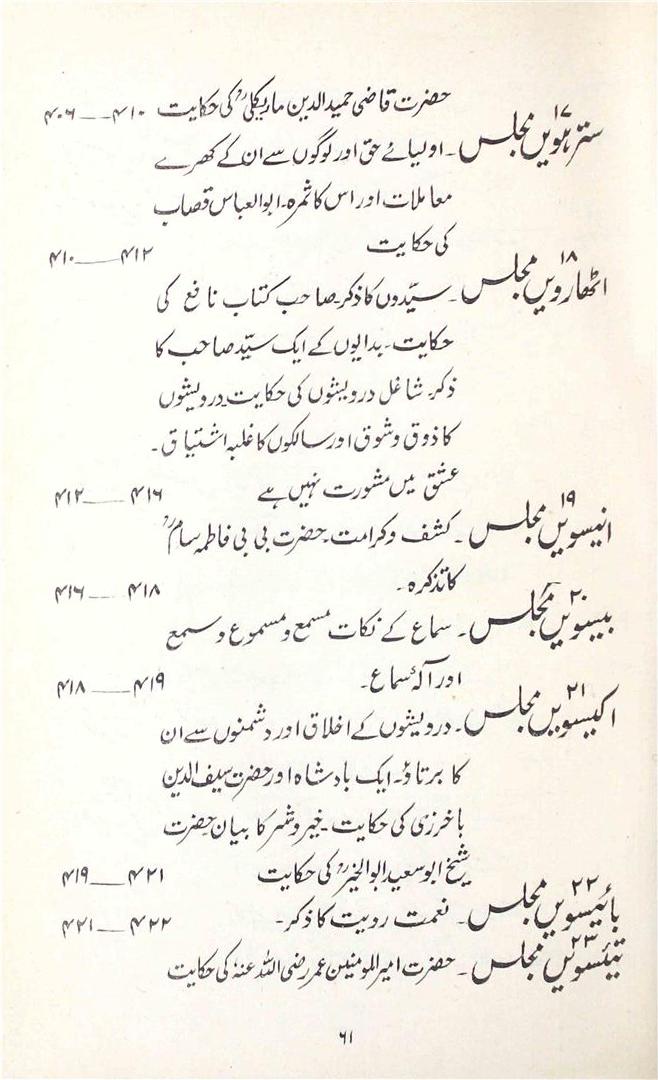 حضرت قاضی حمیدالدین ماریکلیؒ کی حکایت ۴۱۰ــــ۴۰۶
۱۷
سترہویں مجلس ۔ اولیائے حق اور لوگوں سے ان کے کھرے
معاملات اور اس کا ثمرہ۔ ابوالعباس قصاب
کی حکایت ۴۱۲ــــ۴۱۰
۱۸
اٹھارویں مجلس ۔ سیّدوں کا ذکر۔ صاحب کتاب نافع کی
حکایت۔ بدایوں کے ایک سیّد صاحب کا
ذکر۔ شاغل درویشوں کی حکایت۔ درویشوں
کا ذوق و شوق اور سالکوں کا غلبہ اشتیاق۔
عشق میں مشورت نہیں ہے ۴۱۶ــــ۴۱۲
۱۹
انیسویں مجلس ۔ کشف و کرامت۔ حضرت بی بی فاطمہ سامؒ
کا تذکرہ۔ ۴۱۸ــــ۴۱۶
۲۰
بیسویں مجلس ۔ سماع کے نکات مسمع و مسموع و سمیع
اور آلۂ سماع۔ ۴۱۹ــــ۴۱۸
۲۱
اکیسویں مجلس ۔ درویشوں کے اخلاق اور دشمنوں سے ان
کا برتاؤ۔ ایک بادشاہ اور حضرت سیف الدین
باخرزی کی حکایت۔ خیر و شر کا بیان۔ حضرت
شیخ ابوسعید ابوالخیرؒ کی حکایت ۴۲۱ــــ۴۱۹
۲۲
بائیسویں مجلس ۔ نعمت رویت کا ذکر۔ ۴۲۲ــــ۴۲۱
۲۳
تیئسویں مجلس ۔ حضرت امیرالمومنین عمر رضی اللہ عنہٗ کی حکایت
۶۱